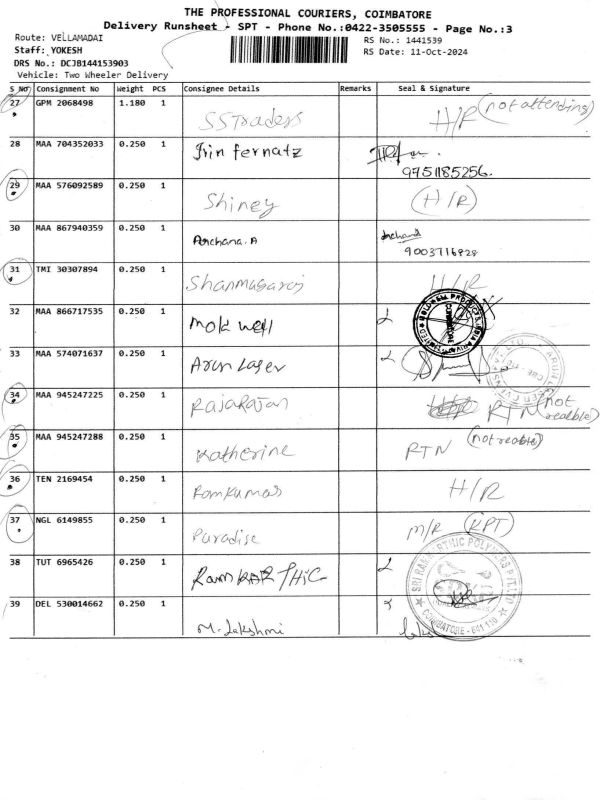 THE PROFESSIONAL COURIERS, COIMBATORE
Delivery Runsheet - SPT - Phone No.:0422-3505555 - Page No.:3
Route: VELLAMADAI
RS No.: 1441539
Staff: YOKESH
RS Date: 11-Oct-2024
DRS No.: DCJB144153903
Vehicle: Two Wheeler Delivery
S No Consignment No Weight PCS Consignee Details Remarks Seal & Signature
27 GPM 2068498 1.180 1 SSTraders H/R (not attending)
28 MAA 704352033 0.250 1 Irin fernatz
9751185256.
29 MAA 576092589 0.250 1 Shiney (H/R)
30 MAA 867940359 0.250 1 Archana.A Archana
9003716828
31 TMI 30307894 0.250 1 Shanmugaraj H/R
32 MAA 866717535 0.250 1 Mok well
33 MAA 574071637 0.250 1 Arun Laser
34 MAA 945247225 0.250 1 Rajarajan RTN (not reable)
35 MAA 945247288 0.250 1 Katherine RTN (not reable)
36 TEN 2169454 0.250 1 Ramkumar H/R
37 NGL 6149855 0.250 1 Paradise M/R (KPT)
38 TUT 6965426 0.250 1 Ram KARTHIC
39 DEL 530014662 0.250 1 M. Lakshmi
COIMBATORE - 641 110